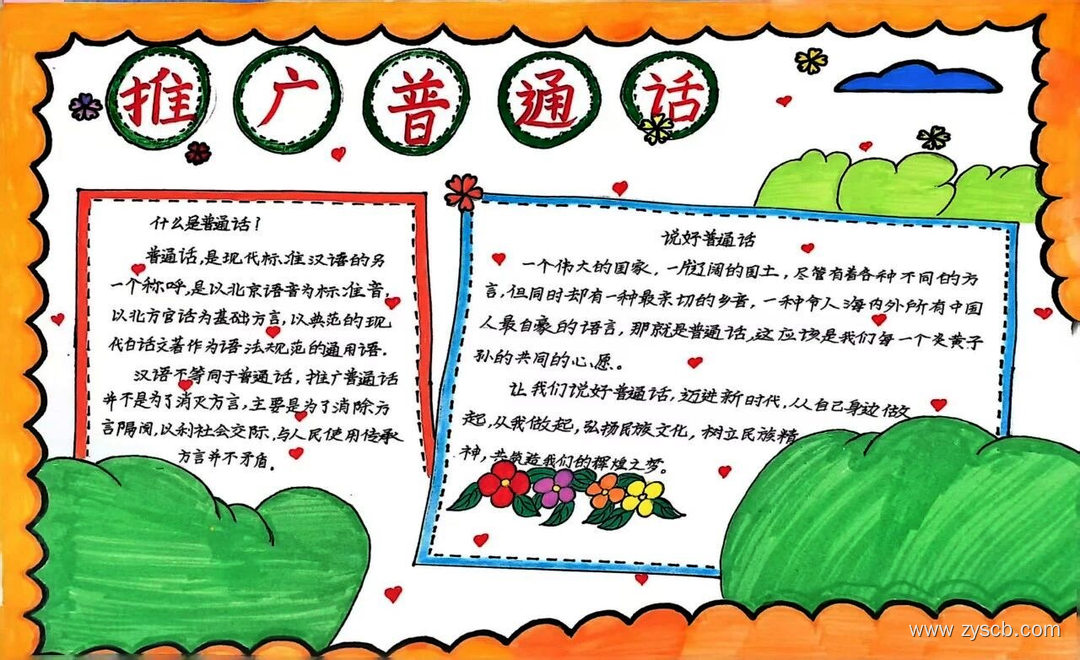 推广普通话
什么是普通话！
普通话，是现代标准汉语的另
一个称呼，是以北京语音为标准音，
以北方官话为基础方言，以典范的现
代白话文著作为语法规范的通用语。
汉语不等同于普通话，推广普通话
并不是为了消灭方言，主要是为了消除方
言隔阂，以利社会交际，与人民使用传承
方言并不矛盾。
说好普通话
一个伟大的国家，一片辽阔的国土，尽管有着各种不同的方
言，但同时却有一种最亲切的乡音，一种令人海内外所有中国
人最自豪的语言，那就是普通话，这应该是我们每一个炎黄子
孙的共同的心愿。
让我们说好普通话，迈进新时代，从自己身边做
起，从我做起，弘扬民族文化，树立民族精
神，共筑造我们的辉煌之梦。
www.zyscb.com